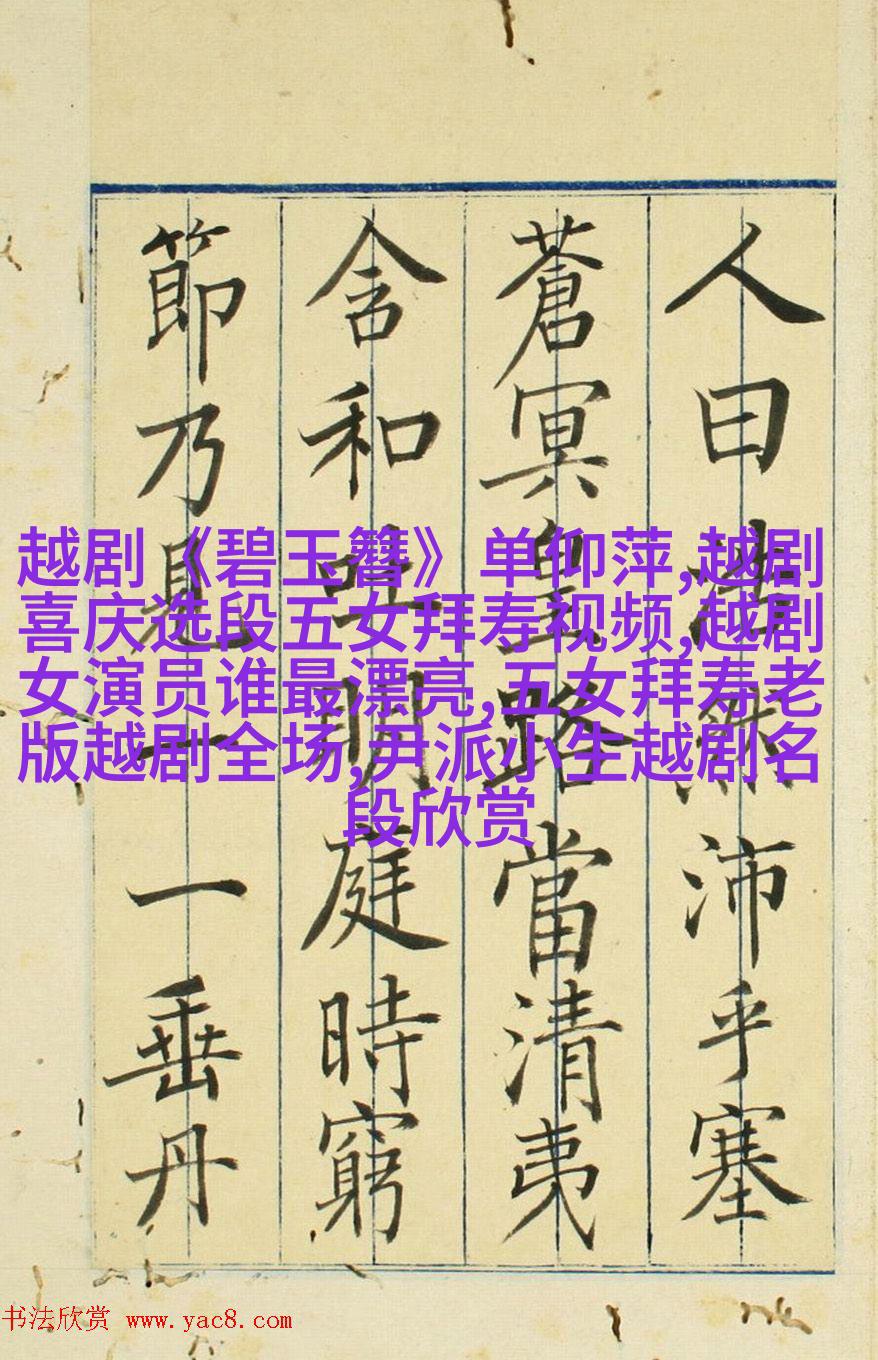 人曰浩然沛乎塞
蒼冥皇路當清夷
含和吐明庭時窮
節乃見一一垂丹
越剧《碧玉簪》单仰萍,越剧
喜庆选段五女拜寿视频,越剧
女演员谁最漂亮,五女拜寿老
版越剧全场,尹派小生越剧名
段欣赏
书法欣赏 www.yac8.com